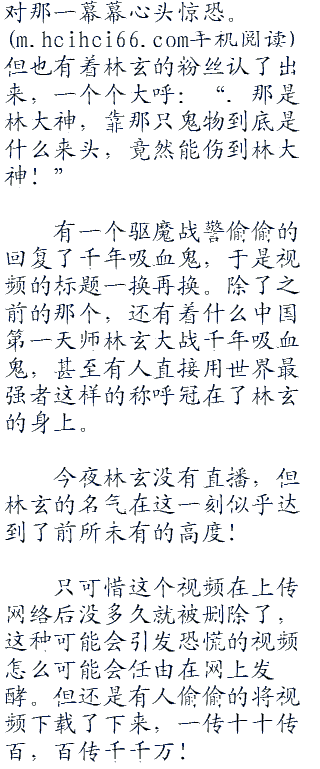 对那一幕幕心头惊恐。
(m.hcihci66.com手机阅读)
但也有着林玄的粉丝认了出
来，一个个大呼：“．那是
林大神，靠那只鬼物到底是
什么来头，竟然能伤到林大
神！”
有一个驱魔战警偷偷的
回复了千年吸血鬼，于是视
频的标题一换再换。除了之
前的那个，还有着什么中国
第一天师林玄大战千年吸血
鬼，甚至有人直接用世界最
强者这样的称呼冠在了林玄
的身上。
今夜林玄没有直播，但
林玄的名气在这一刻似乎达
到了前所未有的高度！
只可惜这个视频在上传
网络后没多久就被删除了，
这种可能会引发恐慌的视频
怎么可能会任由在网上发
酵。但还是有人偷偷的将视
频下载了下来，一传十十传
百，百传千千万！